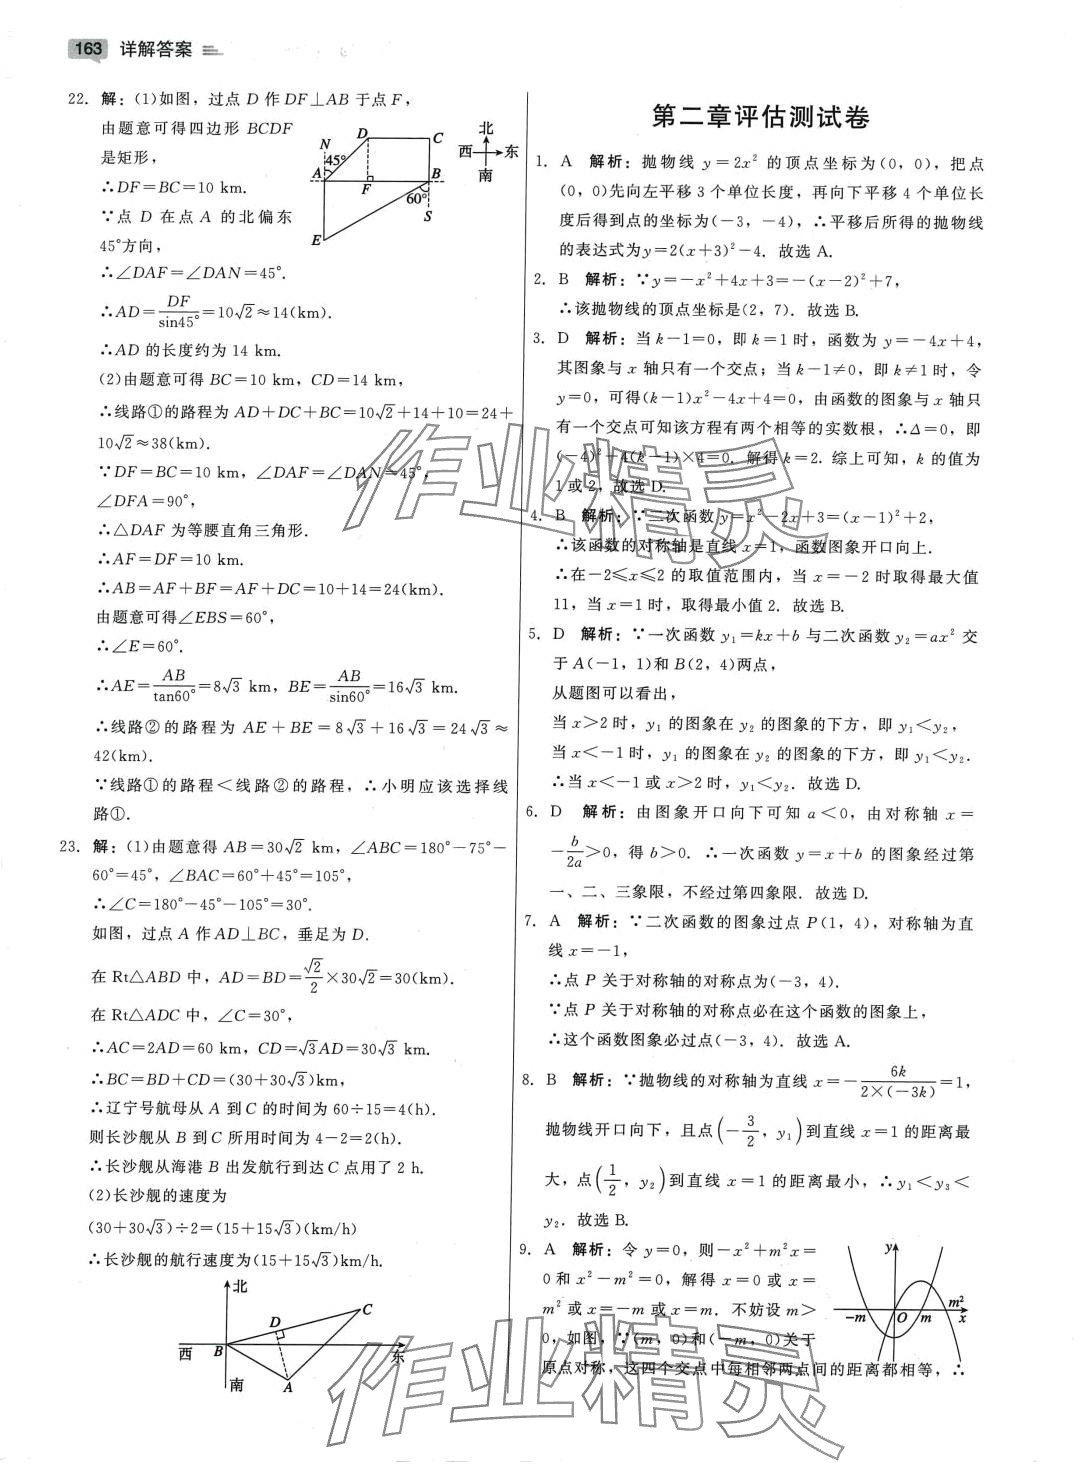 163 详解答案
22. 解：(1)如图，过点 D 作 DF⊥AB 于点 F，
由题意可得四边形 BCDF
是矩形，
∴DF=BC=10 km.
∵点 D 在点 A 的北偏东
45°方向，
∴∠DAF=∠DAN=45°.
∴AD=DF/sin45°=10√2≈14(km).
∴AD 的长度约为 14 km.
(2)由题意可得 BC=10 km，CD=14 km，
∴线路①的路程为 AD+DC+BC=10√2+14+10=24+
10√2≈38(km).
∵DF=BC=10 km，∠DAF=∠DAN=45°，
∠DFA=90°，
∴△DAF 为等腰直角三角形.
∴AF=DF=10 km.
∴AB=AF+BF=AF+DC=10+14=24(km).
由题意可得∠EBS=60°，
∴∠E=60°.
∴AE=AB/tan60°=8√3 km，BE=AB/sin60°=16√3 km.
∴线路②的路程为 AE+BE=8√3+16√3=24√3≈
42(km).
∵线路①的路程<线路②的路程，∴小明应该选择线
路①.
N
D
C
45°
A
F
B
60°
S
E
北
西
东
南
23. 解：(1)由题意得 AB=30√2 km，∠ABC=180°-75°-
60°=45°，∠BAC=60°+45°=105°，
∴∠C=180°-45°-105°=30°.
如图，过点 A 作 AD⊥BC，垂足为 D.
在 Rt△ABD 中，AD=BD=√2/2×30√2=30(km).
在 Rt△ADC 中，∠C=30°，
∴AC=2AD=60 km，CD=√3AD=30√3 km.
∴BC=BD+CD=(30+30√3)km.
∴辽宁号航母从 A 到 C 的时间为 60÷15=4(h).
则长沙舰从 B 到 C 所用时间为 4-2=2(h).
∴长沙舰从海港 B 出发航行到达 C 点用了 2 h.
(2)长沙舰的速度为
(30+30√3)÷2=(15+15√3)(km/h)
∴长沙舰的航行速度为(15+15√3)km/h.
北
D
C
西
B
东
南
A
第二章评估测试卷
1. A 解析：抛物线 y=2x² 的顶点坐标为(0，0)，把点
(0，0)先向左平移 3 个单位长度，再向下平移 4 个单位长
度后得到点的坐标为(-3，-4)，∴平移后所得的抛物线
的表达式为y=2(x+3)²-4. 故选 A.
2. B 解析：∵y=-x²+4x+3=-(x-2)²+7，
∴该抛物线的顶点坐标是(2，7). 故选 B.
3. D 解析：当 k-1=0，即 k=1 时，函数为 y=-4x+4，
其图象与 x 轴只有一个交点；当 k-1≠0，即 k≠1 时，令
y=0，可得(k-1)x²-4x+4=0，由函数的图象与 x 轴只
有一个交点可知该方程有两个相等的实数根，∴Δ=0，即
(-4)²-4(k-1)×4=0. 解得 k=2. 综上可知，k 的值为
1 或 2，故选 D.
4. B 解析：∵二次函数 y=x²-2x+3=(x-1)²+2，
∴该函数的对称轴是直线 x=1，函数图象开口向上.
∴在-2≤x≤2 的取值范围内，当 x=-2 时取得最大值
11，当 x=1 时，取得最小值 2. 故选 B.
5. D 解析：∵一次函数 y₁=kx+b 与二次函数 y₂=ax² 交
于 A(-1，1)和 B(2，4)两点，
从题图可以看出，
当 x>2 时，y₁ 的图象在 y₂ 的图象的下方，即 y₁<y₂，
当 x<-1 时，y₁ 的图象在 y₂ 的图象的下方，即 y₁<y₂.
∴当 x<-1 或 x>2 时，y₁<y₂. 故选 D.
6. D 解析：由图象开口向下可知 a<0，由对称轴 x=
-b/2a>0，得 b>0. ∴一次函数 y=x+b 的图象经过第
一、二、三象限，不经过第四象限. 故选 D.
7. A 解析：∵二次函数的图象过点 P(1，4)，对称轴为直
线 x=-1，
∴点 P 关于对称轴的对称点为(-3，4).
∵点 P 关于对称轴的对称点必在这个函数的图象上，
∴这个函数图象必过点(-3，4). 故选 A.
8. B 解析：∵抛物线的对称轴为直线 x=-6k/2×(-3k)=1，
抛物线开口向下，且点(-3/2，y₁)到直线 x=1 的距离最
大，点(1/2，y₂)到直线 x=1 的距离最小，∴y₁<y₃<
y₂. 故选 B.
9. A 解析：令 y=0，则-x²+m²x=
0 和 x²-m²=0，解得 x=0 或 x=
m² 或 x=-m 或 x=m. 不妨设 m>
0，如图，∵(m，0)和(-m，0)关于
原点对称，这四个交点中每相邻两点间的距离都相等，∴
y
-m
O
m
m²
x
作业精灵
作业精灵